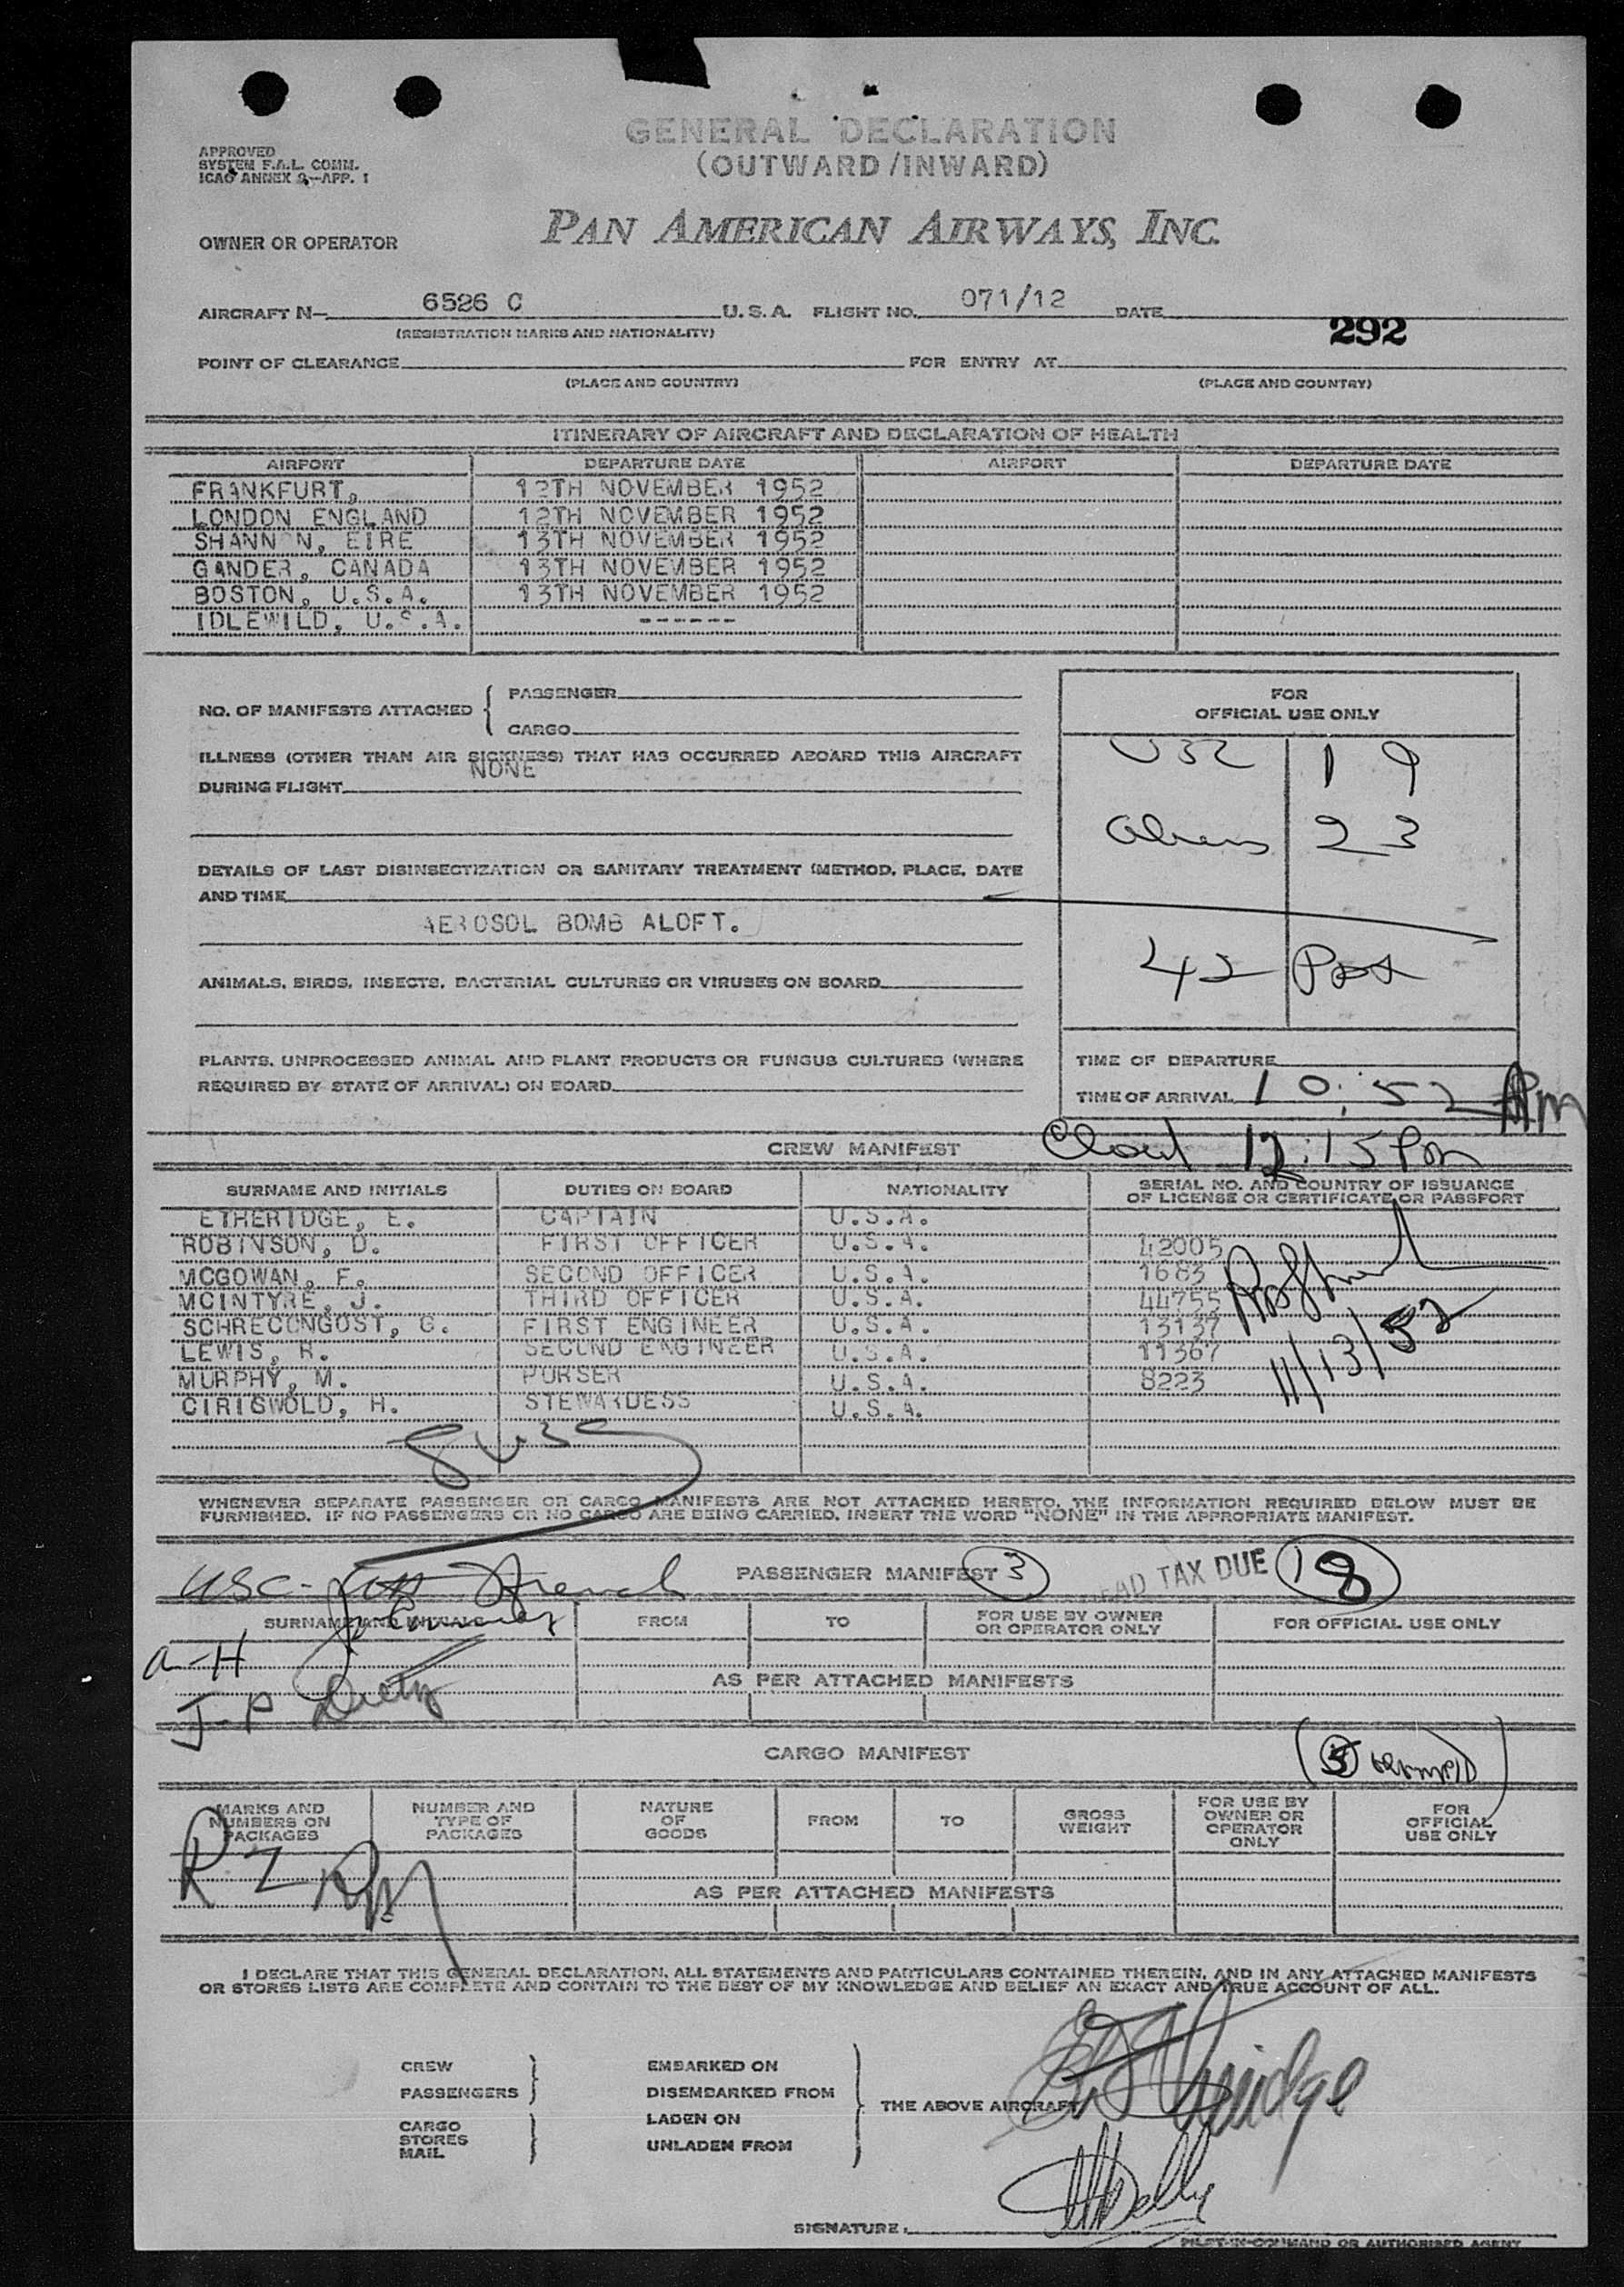 GENERAL DECLARATION
(OUTWARD/INWARD)
APPROVED
SYSTEM F.A.L. COMM.
ICAO ANNEX 9—APP. 1
PAN AMERICAN AIRWAYS, INC.
OWNER OR OPERATOR
AIRCRAFT N— 6526 C U.S.A. FLIGHT NO. 071/12 DATE
(REGISTRATION MARKS AND NATIONALITY) 292
POINT OF CLEARANCE FOR ENTRY AT
(PLACE AND COUNTRY) (PLACE AND COUNTRY)
ITINERARY OF AIRCRAFT AND DECLARATION OF HEALTH
AIRPORT DEPARTURE DATE AIRPORT DEPARTURE DATE
FRANKFURT, 12TH NOVEMBER 1952
LONDON ENGLAND 12TH NOVEMBER 1952
SHANN N, EIRE 13TH NOVEMBER 1952
GANDER, CANADA 13TH NOVEMBER 1952
BOSTON, U.S.A. 13TH NOVEMBER 1952
IDLEWILD, U.S.A. ------
NO. OF MANIFESTS ATTACHED { PASSENGER
CARGO
FOR
OFFICIAL USE ONLY
ILLNESS (OTHER THAN AIR SICKNESS) THAT HAS OCCURRED ABOARD THIS AIRCRAFT
DURING FLIGHT NONE
USC 19
Aliens 23
DETAILS OF LAST DISINSECTIZATION OR SANITARY TREATMENT (METHOD, PLACE, DATE
AND TIME
AEROSOL BOMB ALOFT.
42 Pax
ANIMALS, BIRDS, INSECTS, BACTERIAL CULTURES OR VIRUSES ON BOARD
PLANTS, UNPROCESSED ANIMAL AND PLANT PRODUCTS OR FUNGUS CULTURES (WHERE
REQUIRED BY STATE OF ARRIVAL) ON BOARD
TIME OF DEPARTURE
TIME OF ARRIVAL 10:52
CREW MANIFEST
12:15 Pm
SURNAME AND INITIALS DUTIES ON BOARD NATIONALITY SERIAL NO. AND COUNTRY OF ISSUANCE
OF LICENSE OR CERTIFICATE OR PASSPORT
ETHERIDGE, E. CAPTAIN U.S.A.
ROBINSON, D. FIRST OFFICER U.S.A. 42005
MCGOWAN, F. SECOND OFFICER U.S.A. 1683
MCINTYRE, J. THIRD OFFICER U.S.A. 44755
SCHRECONGOST, G. FIRST ENGINEER U.S.A. 13137
LEWIS, R. SECOND ENGINEER U.S.A. 11367
MURPHY, M. PURSER U.S.A. 8223
CIRISWOLD, H. STEWARDESS U.S.A.
11/13/52
8 USC
WHENEVER SEPARATE PASSENGER OR CARGO MANIFESTS ARE NOT ATTACHED HERETO, THE INFORMATION REQUIRED BELOW MUST BE
FURNISHED. IF NO PASSENGERS OR NO CARGO ARE BEING CARRIED, INSERT THE WORD "NONE" IN THE APPROPRIATE MANIFEST.
USC- French PASSENGER MANIFEST 3 HEAD TAX DUE 18
SURNAME AND INITIALS FROM TO FOR USE BY OWNER
OR OPERATOR ONLY FOR OFFICIAL USE ONLY
A-H
AS PER ATTACHED MANIFESTS
J-P
CARGO MANIFEST
MARKS AND
NUMBERS ON
PACKAGES
NUMBER AND
TYPE OF
PACKAGES
NATURE
OF
GOODS
FROM
TO
GROSS
WEIGHT
FOR USE BY
OWNER OR
OPERATOR
ONLY
FOR
OFFICIAL
USE ONLY
R Z
AS PER ATTACHED MANIFESTS
I DECLARE THAT THIS GENERAL DECLARATION, ALL STATEMENTS AND PARTICULARS CONTAINED THEREIN, AND IN ANY ATTACHED MANIFESTS
OR STORES LISTS ARE COMPLETE AND CONTAIN TO THE BEST OF MY KNOWLEDGE AND BELIEF AN EXACT AND TRUE ACCOUNT OF ALL.
CREW
PASSENGERS
CARGO
STORES
MAIL
EMBARKED ON
DISEMBARKED FROM
LADEN ON
UNLADEN FROM
THE ABOVE AIRCRAFT
SIGNATURE:
PILOT-IN-COMMAND OR AUTHORISED AGENT